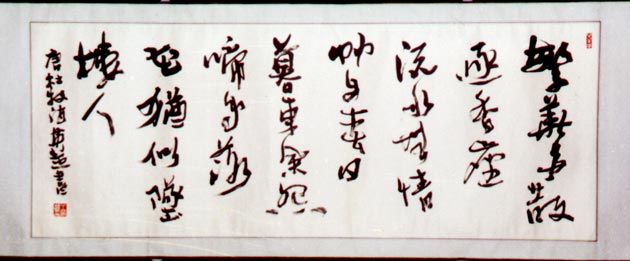 繁華事散
逐香塵
流水無情
艸自春日
暮東風怨
啼鳥落
花猶似墜
樓人
唐杜牧詩